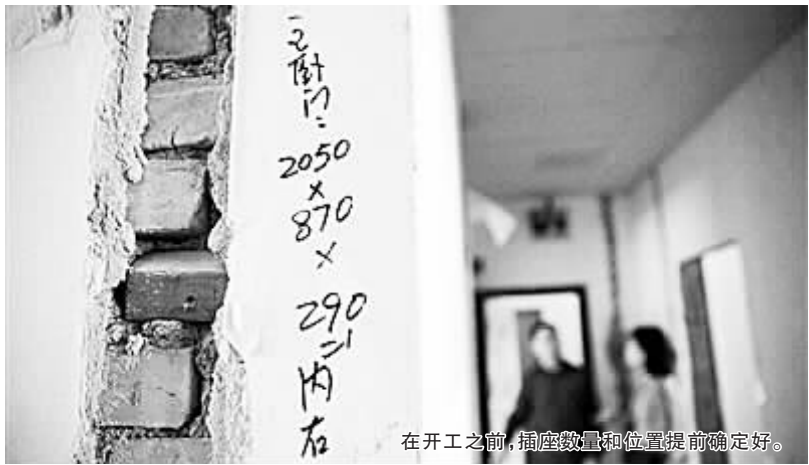 厨门:
2050
×
870
×
290
=1
内
右
在开工之前,插座数量和位置提前确定好。